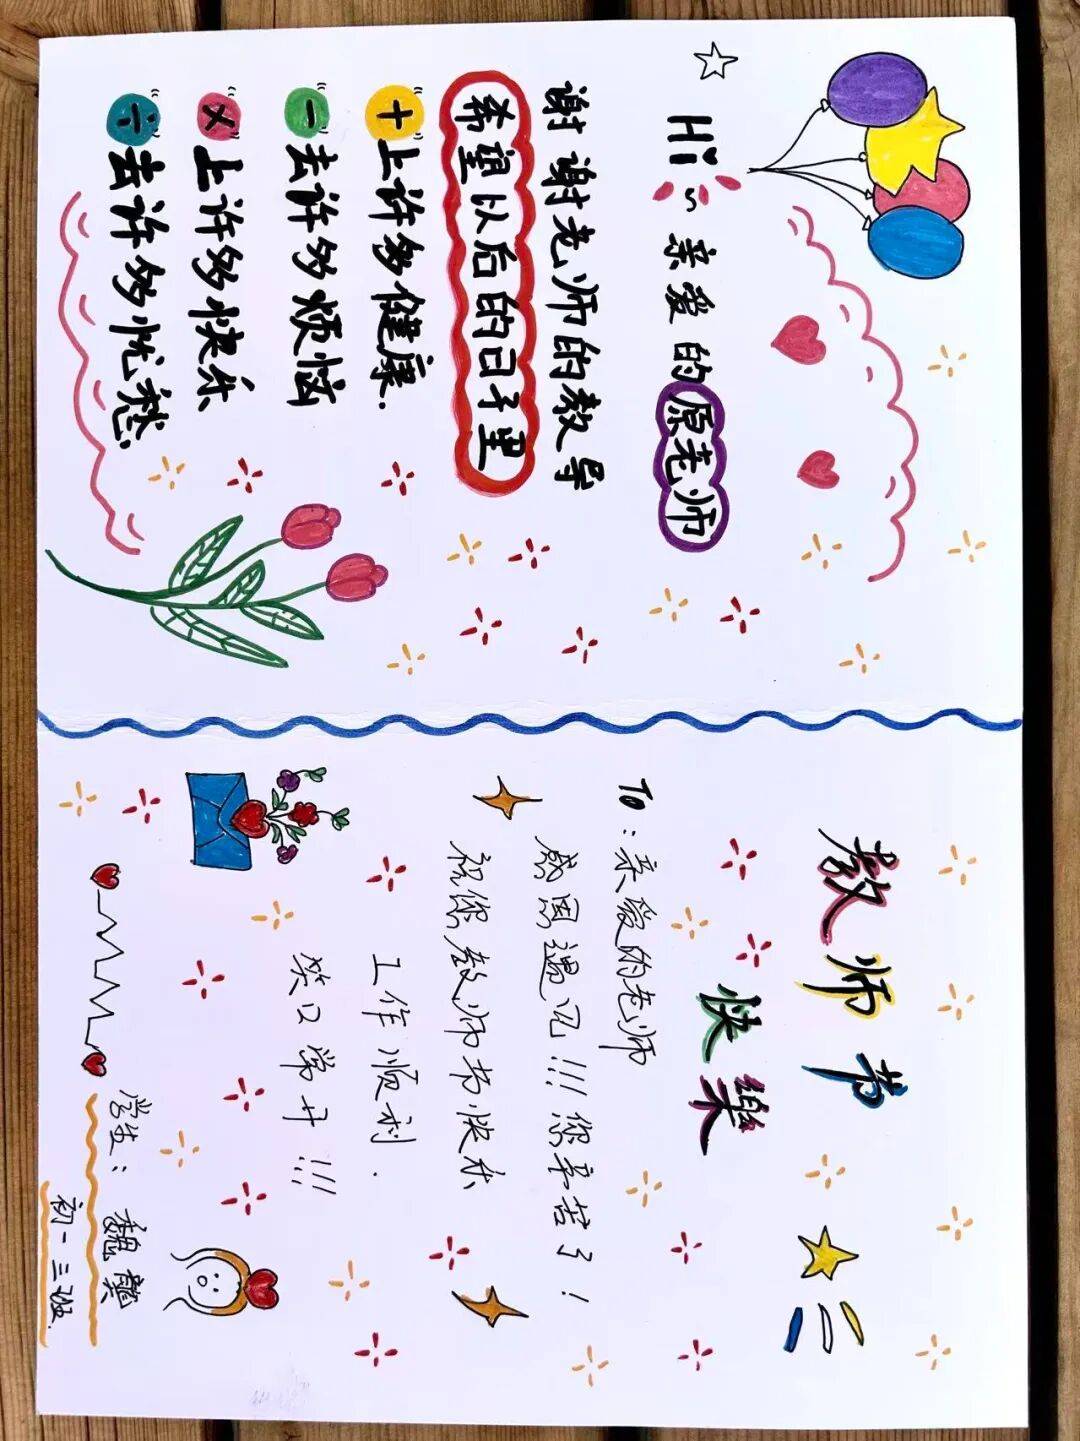 Hi~亲爱的原老师
谢谢老师的教导
希望以后的日子里
+上许多健康.
-去许多烦恼
×上许多快乐
÷去许多忧愁.
教师节
快樂
To:亲爱的老师
感恩遇见!!!您辛苦了!
祝你教师节快乐
工作顺利.
笑口常开!!!
学生:魏龑
初一三班.